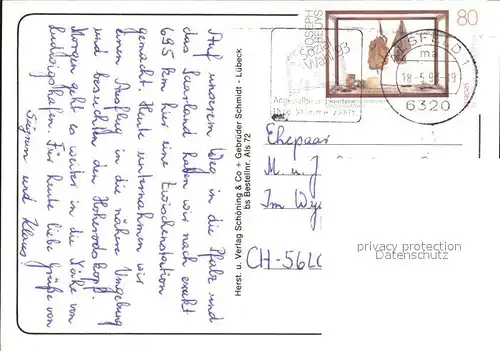 Auf unserem Weg in die Pfalz und
das Saarland haben wir nach exakt
695 km hier eine Zwischenstation
gemacht. Heute unternahmen wir
einen Ausflug in die nähere Umgebung
und besuchten den Hoherodskopf.
Morgen geht es weiter in die Nähe von
Ludwigshafen. Für heute liebe Grüße von
Sigrun und Klaus!
Herst. u. Verlag Schöning & Co + Gebrüder Schmidt - Lübeck
bs Bestellnr. Als 72
JOSEPH
BEUYS
80
ALSFELD 1
18.-5.93
6320
Ehepaar
M. u. J
Im
CH-5620
privacy protection
Datenschutz